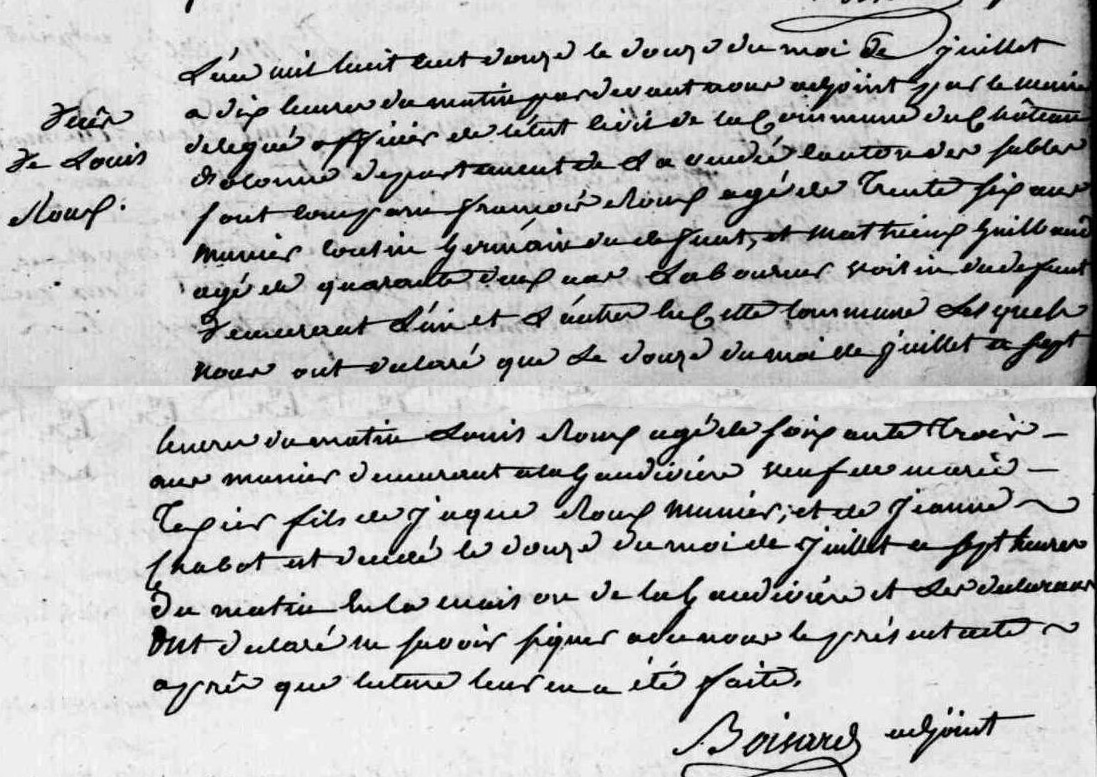 Décès
de Louis
Roux.
L'an mil huit cent douze le douze du moi de juillet
a dix heures du matin pardevant nous adjoint par le maire
delegué officier de l'état civil de la Commune du Château
d'olonne departement de La vendée canton des sables
sont comparu françois Roux agé de Trente six ans
munier cousin Germain du defunt, et mathieux Guillbaud
agé de quarante deux ans Laboureur voisin du defunt
demeurant L'un et L'autre en Cette commune Lesquels
nous ont declaré que Le douze du moi de juillet a sept
heures du matin Louis Roux agé de soixante trois
ans munier demeurant a la Gaudivière veuf de marie
Texier fils de jaque Roux munier, et de jeanne
Chabot est decedé le douze du moi de juillet a sept heures
du matin En la maison de la Gaudivière et Les declarans
Ont declaré ne savoir signer avec nous le présent acte
après que lecture leur en a été faite.
Boisard adjoint